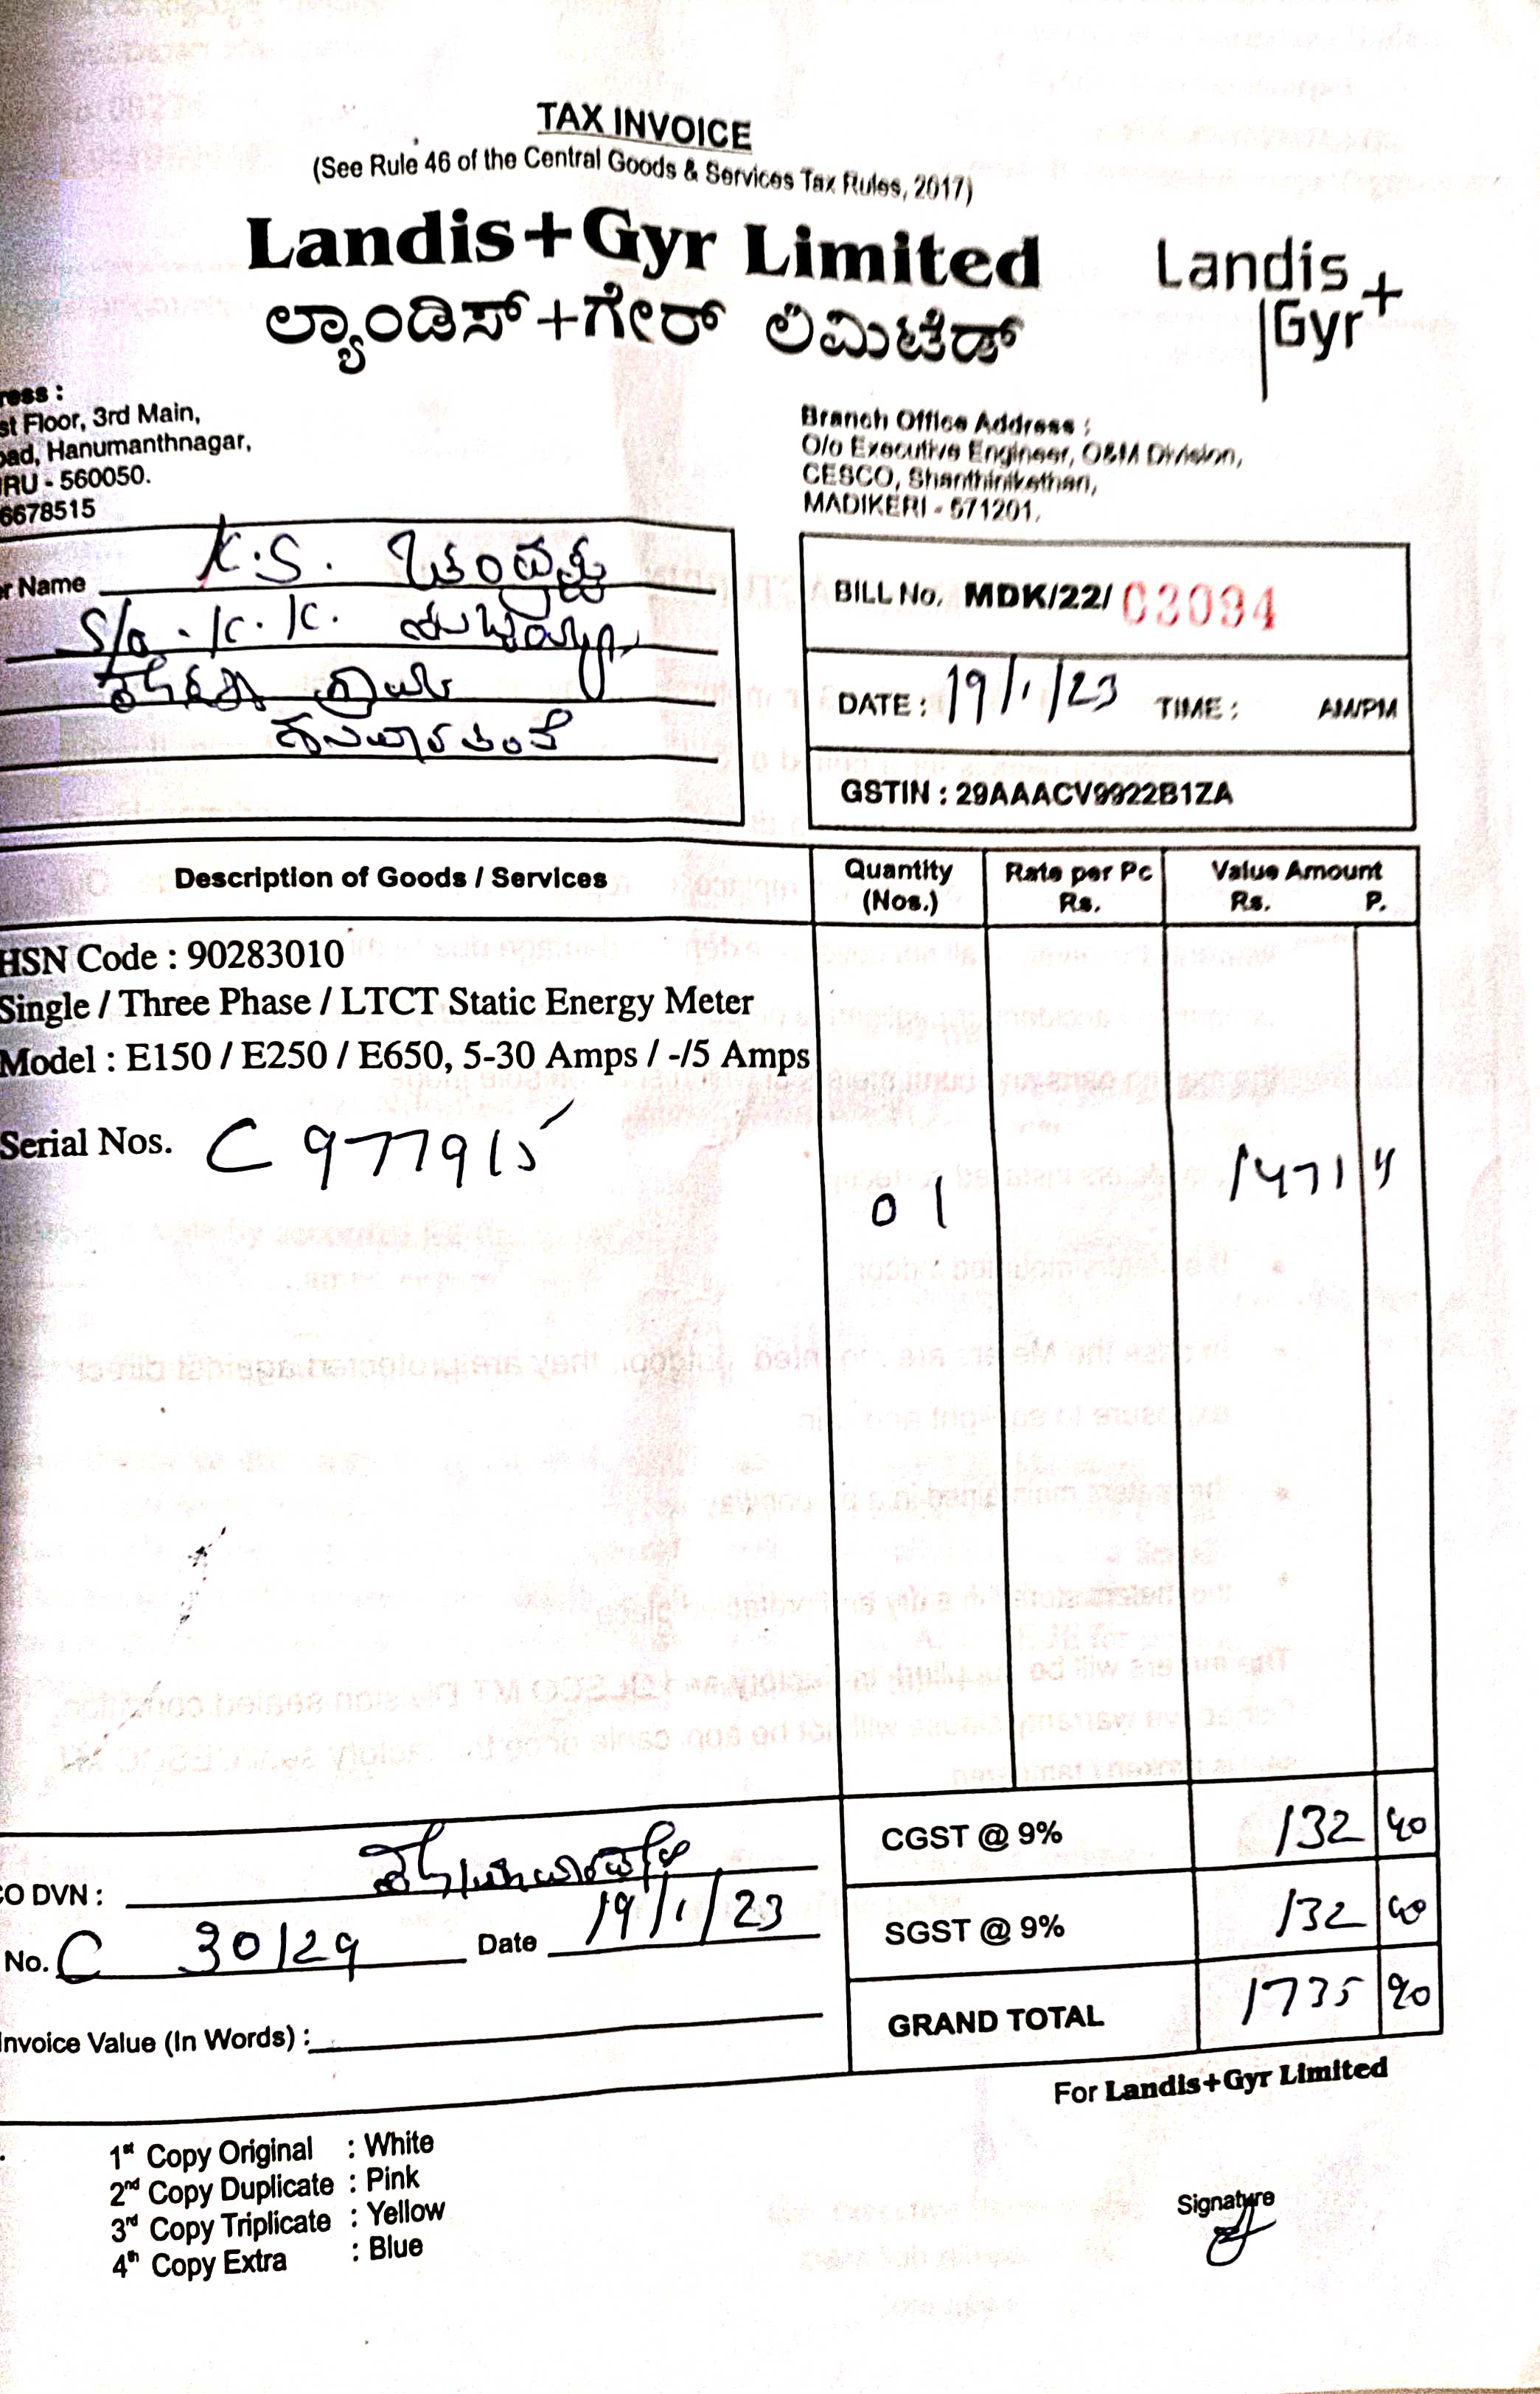 TAX INVOICE
(See Rule 46 of the Central Goods & Services Tax Rules, 2017)
Landis+Gyr Limited
ಲ್ಯಾಂಡಿಸ್+ಗೇರ್ ಲಿಮಿಟೆಡ್
Landis+
Gyr
ress :
st Floor, 3rd Main,
oad, Hanumanthnagar,
RU - 560050.
6678515
Branch Office Address :
O/o Executive Engineer, O&M Division,
CESCO, Shanthinikethan,
MADIKERI - 571201.
r Name K.S.
S/o. K.K.
BILL No. MDK/22/ 03094
DATE : 19/1/23 TIME : AM/PM
GSTIN : 29AAACV9922B1ZA
Description of Goods / Services Quantity (Nos.) Rate per Pc Rs. Value Amount Rs. P.
HSN Code : 90283010
Single / Three Phase / LTCT Static Energy Meter
Model : E150 / E250 / E650, 5-30 Amps / -/5 Amps
Serial Nos. C 977915
01 1471
CGST @ 9% 132 40
O DVN :
SGST @ 9% 132 40
No. C 30/29 Date 19/1/23
GRAND TOTAL 1735 90
Invoice Value (In Words) :
For Landis+Gyr Limited
1st Copy Original : White
2nd Copy Duplicate : Pink
3rd Copy Triplicate : Yellow
4th Copy Extra : Blue
Signature